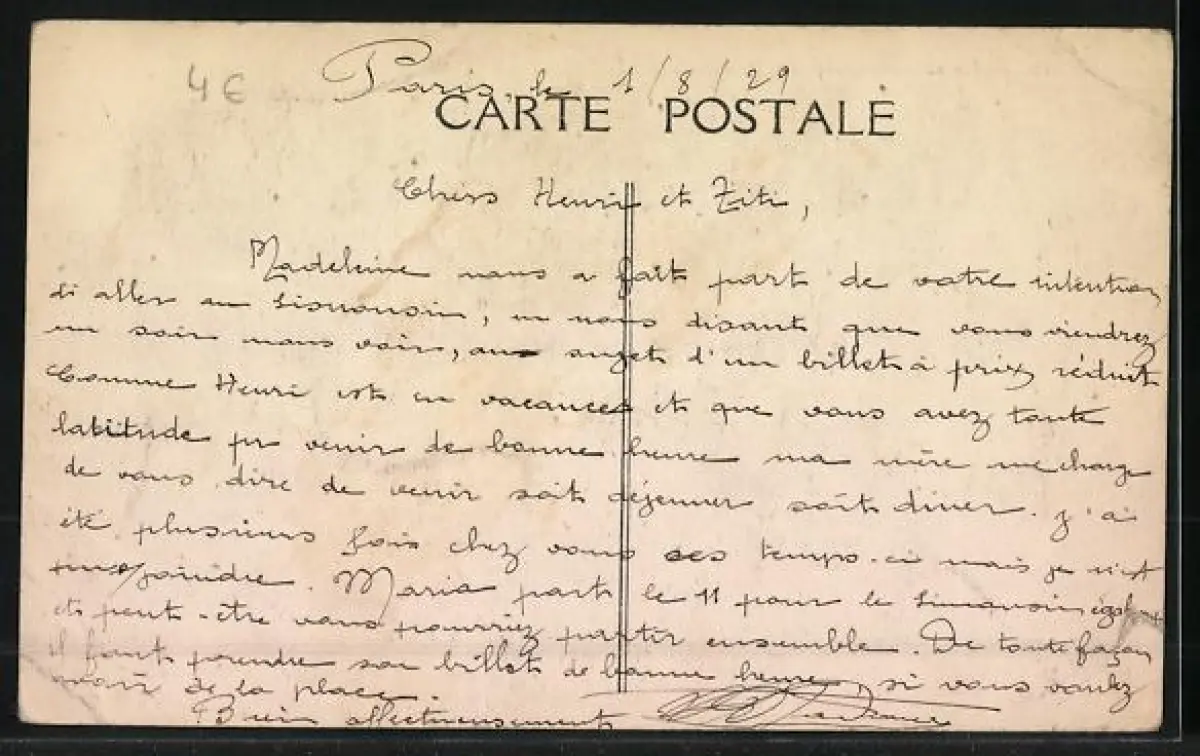 4€
Paris, le 1/8/29
CARTE POSTALE
Chers Henri et Ziti,
Madeleine nous a fait part de votre intention
di aller au Limousin, en nous disant que vous viendrez
un soir nous voir, au sujet d'un billet à prix réduit
Comme Henri est en vacances et que vous avez toute
latitude pr venir de bonne heure ma mère me charge
de vous dire de venir soit déjeuner soit diner. J'ai
été plusieurs fois chez vous ces temps-ci mais je
joindre. Maria part le 11 pour le Limousin égalemt
et peut-être vous pourriez partir ensemble. De toute façon
il faut prendre son billet de bonne heure, si vous voulez
avoir de la place.
Bien affectueusement